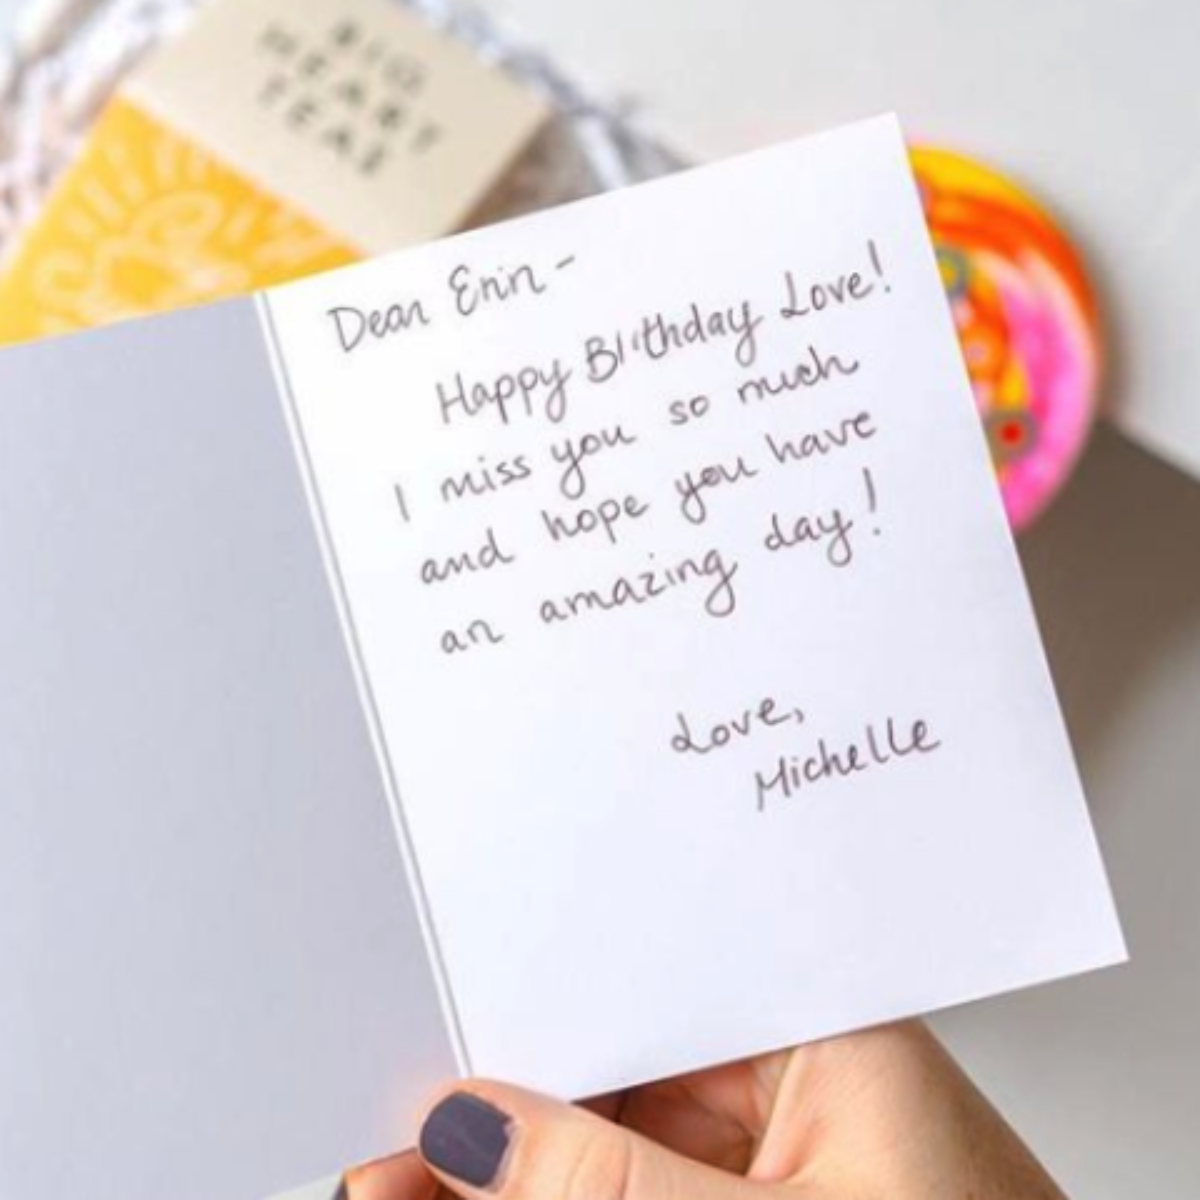 BIG
HEART
TEAS
Dear Erin -
Happy Birthday Love!
I miss you so much
and hope you have
an amazing day!
Love,
Michelle